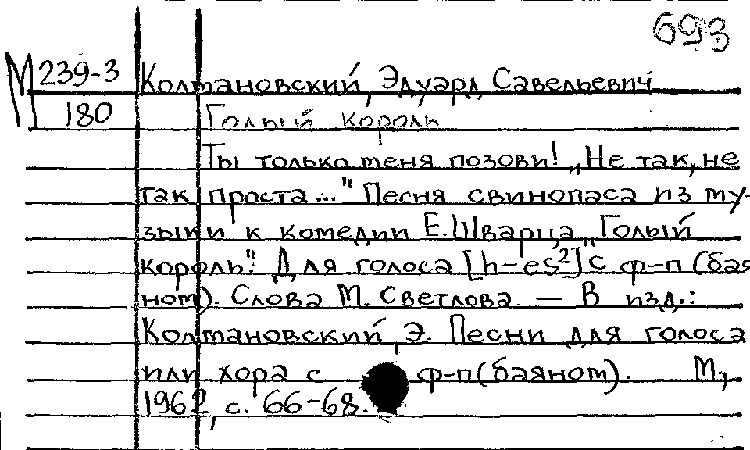 693
М 239-3 Колмановский, Эдуард Савельевич
180 Голый король
Ты только меня позови! „Не так, не
так проста..." Песня свинопаса из му-
зыки к комедии Е. Шварца „Голый
король". Для голоса [h-es²] с ф-п (бая
ном). Слова М. Светлова. — В изд.:
Колмановский, Э. Песни для голоса
или хора с ф-п (баяном). М.,
1962, с. 66-68.